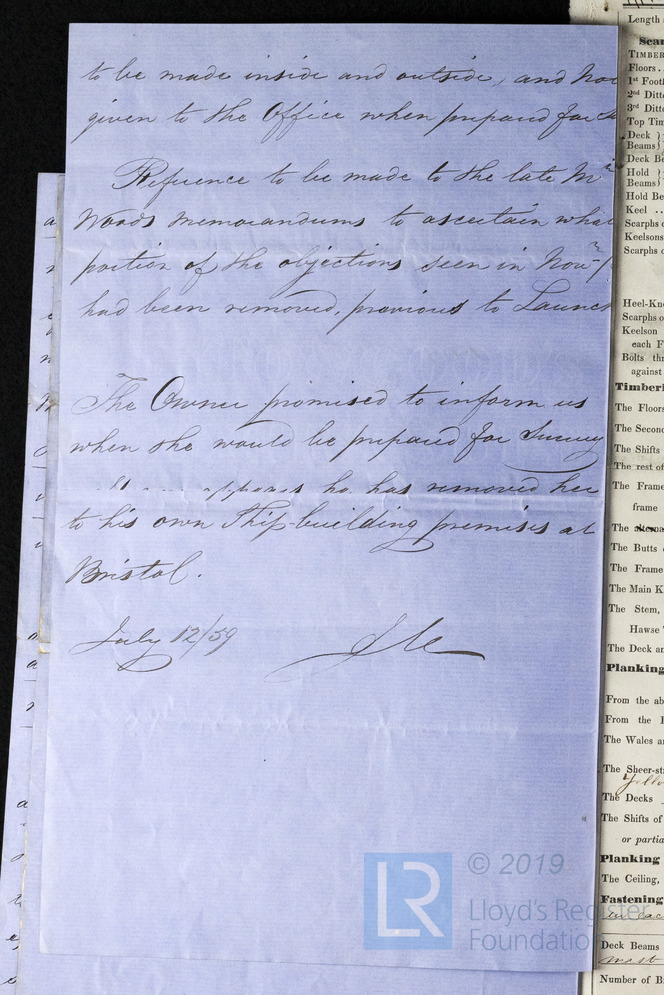 to be made inside and outside, and
given to the Office when prepared for
Reference to be made to the late Mr
Woods memorandums to ascertain what
portion of the objections seen in Novr
had been removed, previous to Launch
The Owner promised to inform us
when she would be prepared for Survey
appears he has removed her
to his own Ship-building premises at
Bristol.
July 12/59
© 2019
LR
Lloyd's Register
Foundation
Length
Scar
TIMBER
Floors ..
1st Foot
2nd Ditto
3rd Ditto
Top Tim
Deck }
Beams}
Deck Be
Hold }
Beams}
Hold Be
Keel ..
Scarphs o
Keelsons
Scarphs o
Heel-Kn
Scarphs o
Keelson
each F
Bolts thr
against
Timberi
The Floor
The Second
The Shifts
The rest of
The Frame
frame
The alterna
The Butts
The Frame
The Main K
The Stem,
Hawse
The Deck an
Planking
From the ab
From the
The Wales a
The Sheer-st
The Decks
The Shifts of
or partia
Planking
The Ceiling,
Fastening
Deck Beams
Number of B